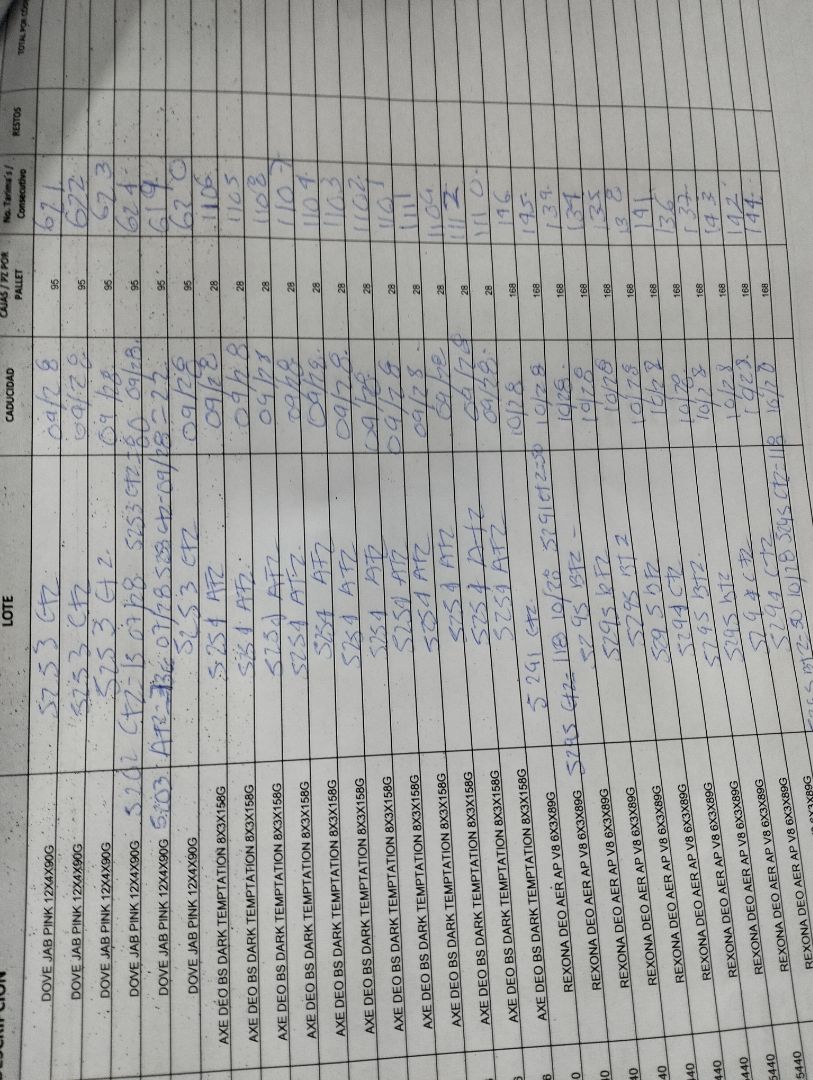 DESCRIPCIÓN LOTE CADUCIDAD CAJAS / PZ POR PALLET No. Tarima's / Consecutivo RESTOS TOTAL POR
DOVE JAB PINK 12X4X90G 5253 CT2 09/28 95 621
DOVE JAB PINK 12X4X90G 5253 CT2 09/28 95 622
DOVE JAB PINK 12X4X90G 5253 CT2 09/28 95 623
DOVE JAB PINK 12X4X90G 5202 CT2=15 07/28 5253 CT2=80 09/28 95 624
DOVE JAB PINK 12X4X90G 5203 AT2 07/28 5253 CT2 09/28 95 619
DOVE JAB PINK 12X4X90G 5253 CT2 09/28 95 620
AXE DEO BS DARK TEMPTATION 8X3X158G 5254 AT2 09/28 28 1106
AXE DEO BS DARK TEMPTATION 8X3X158G 5254 AT2 09/28 28 1105
AXE DEO BS DARK TEMPTATION 8X3X158G 5254 AT2 09/28 28 1108
AXE DEO BS DARK TEMPTATION 8X3X158G 5254 AT2 09/28 28 1107
AXE DEO BS DARK TEMPTATION 8X3X158G 5254 AT2 09/28 28 1109
AXE DEO BS DARK TEMPTATION 8X3X158G 5254 AT2 09/28 28 1103
AXE DEO BS DARK TEMPTATION 8X3X158G 5254 AT2 09/28 28 1102
AXE DEO BS DARK TEMPTATION 8X3X158G 5254 AT2 09/28 28 1101
AXE DEO BS DARK TEMPTATION 8X3X158G 5254 AT2 09/28 28 1111
AXE DEO BS DARK TEMPTATION 8X3X158G 5254 AT2 09/28 28 1104
AXE DEO BS DARK TEMPTATION 8X3X158G 5254 AT2 09/28 28 1112
AXE DEO BS DARK TEMPTATION 8X3X158G 5254 AT2 09/28 28 1110
REXONA DEO AER AP V8 6X3X89G 5291 CT2 10/28 168 146
REXONA DEO AER AP V8 6X3X89G 5295 CT2=118 10/28 5291 CT2=50 10/28 168 145
REXONA DEO AER AP V8 6X3X89G 5295 BT2 10/28 168 139
REXONA DEO AER AP V8 6X3X89G 5295 BT2 10/28 168 134
REXONA DEO AER AP V8 6X3X89G 5295 BT2 10/28 168 135
REXONA DEO AER AP V8 6X3X89G 5295 BT2 10/28 168 138
REXONA DEO AER AP V8 6X3X89G 5294 CT2 10/28 168 141
REXONA DEO AER AP V8 6X3X89G 5295 BT2 10/28 168 136
REXONA DEO AER AP V8 6X3X89G 5295 BT2 10/28 168 137
REXONA DEO AER AP V8 6X3X89G 5294 CT2 10/28 168 143
5294 CT2 10/28 168 142
5295 BT2=50 10/28 5295 CT2=118 10/28 168 144